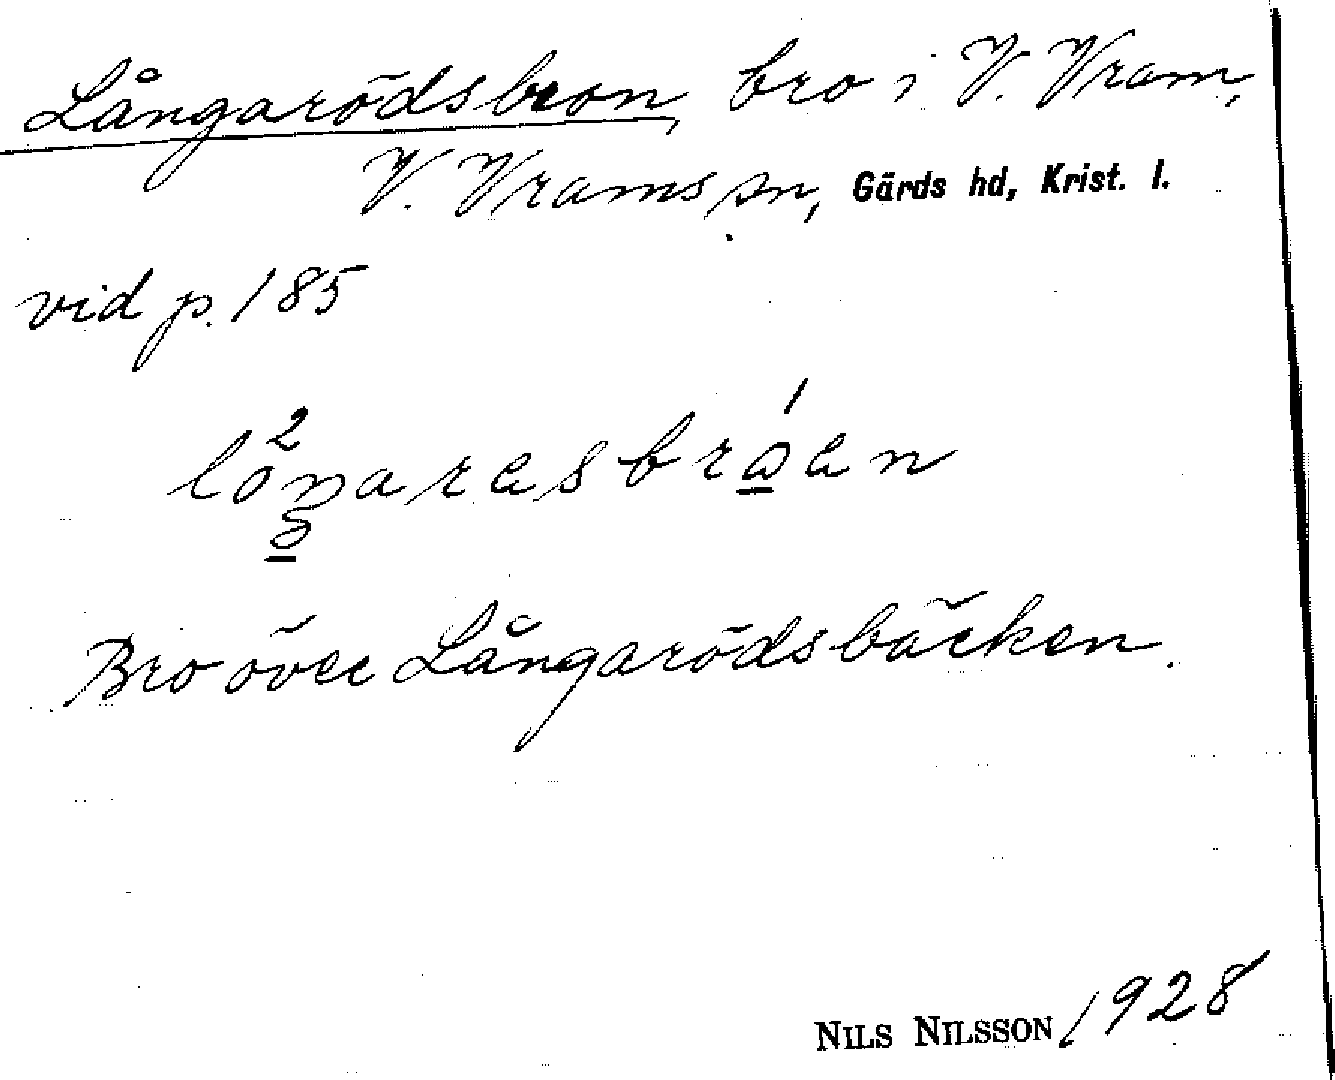 Långarödsbron, bro i V. Vram,
V. Vrams sn, Gärds hd, Krist. l.
vid p. 185
Bro över Långarödsbäcken.
NILS NILSSON 1928